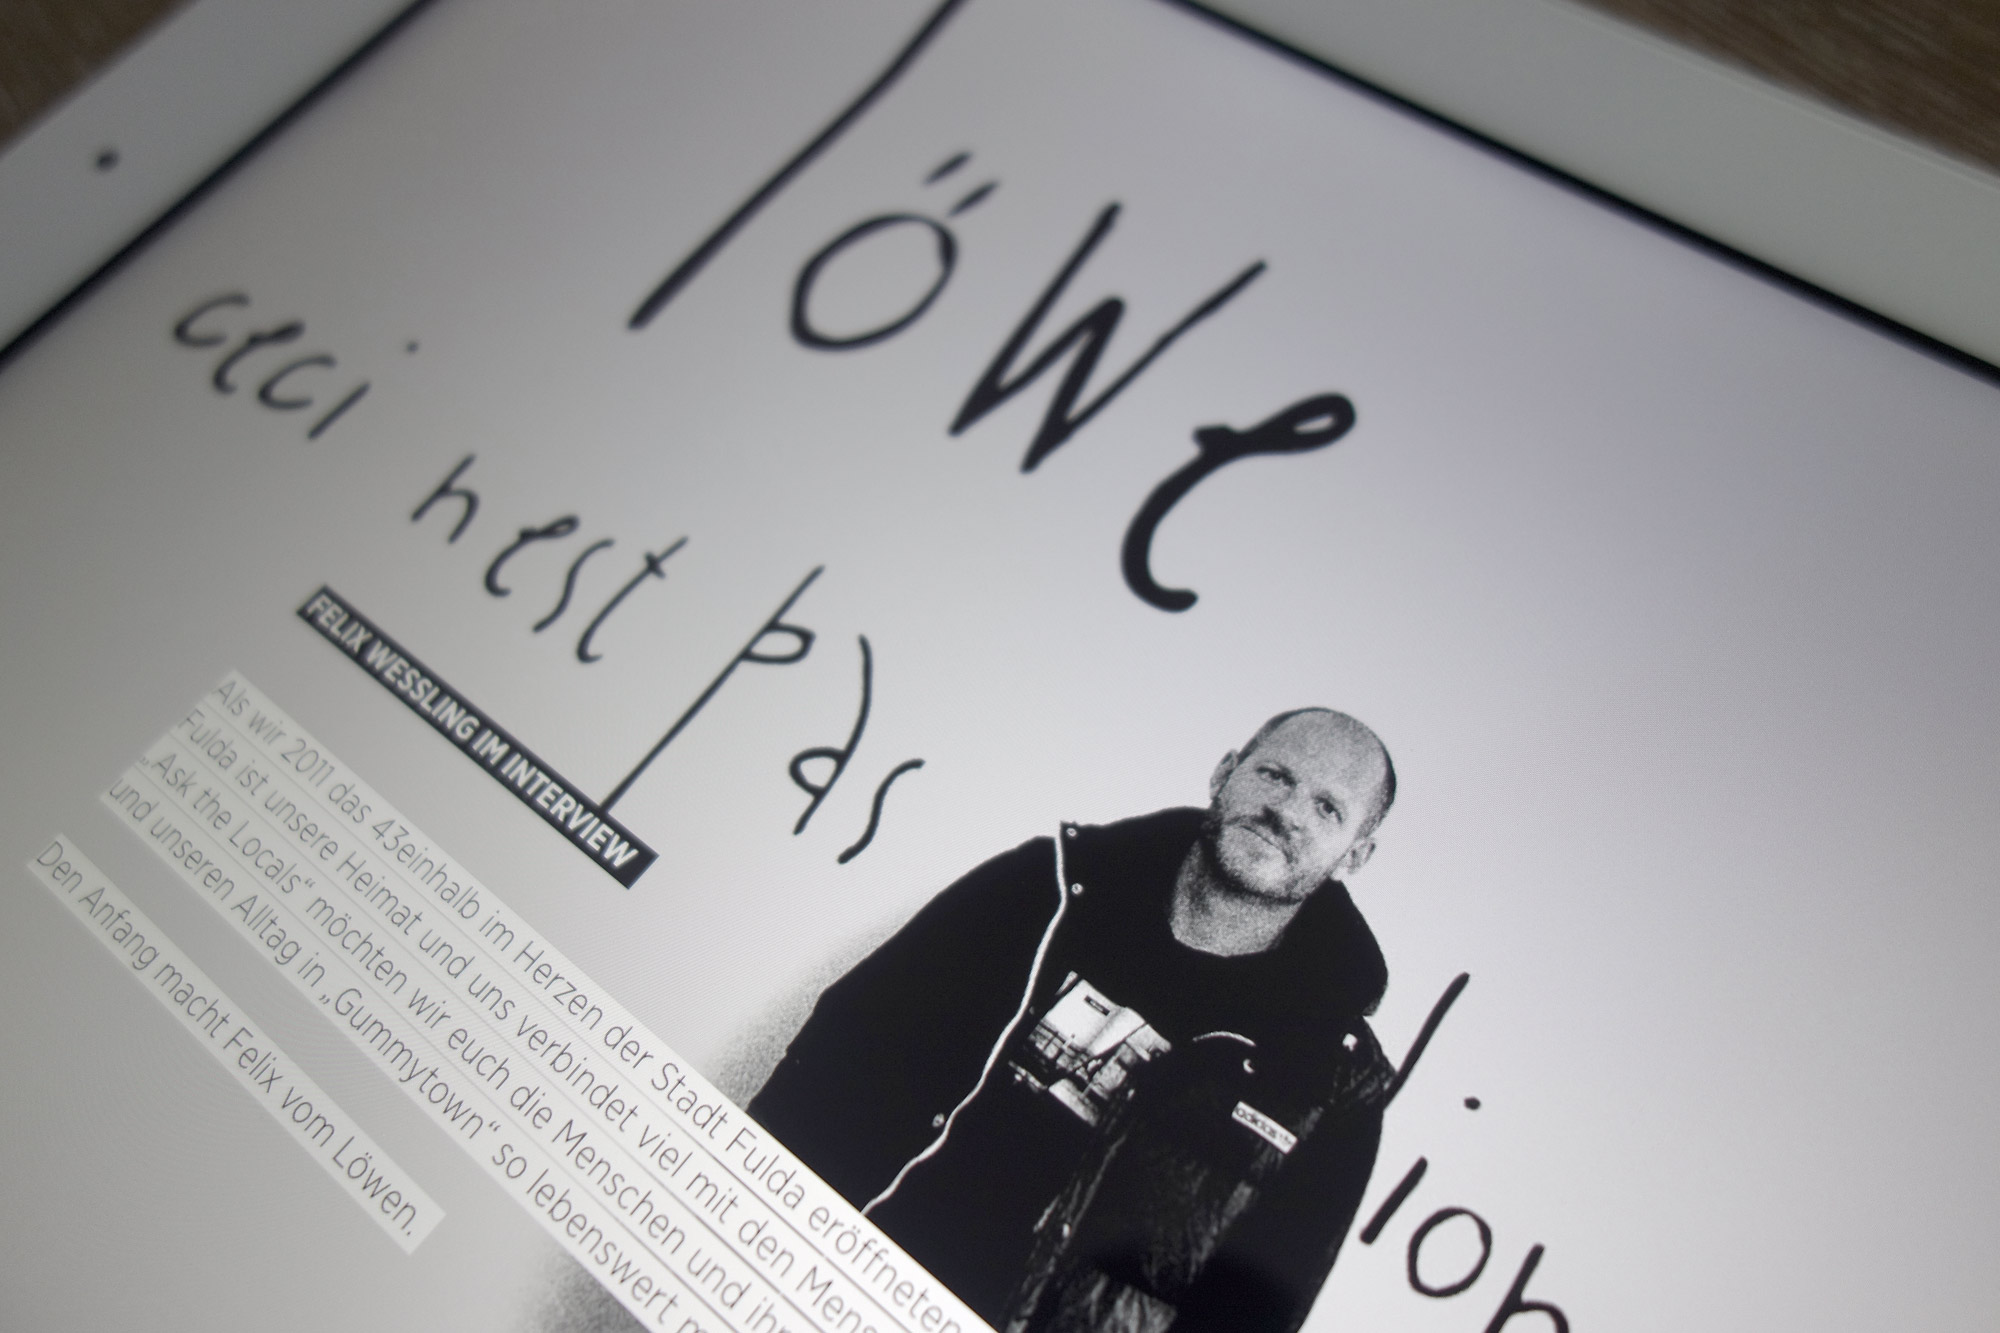 löwe
ceci nest pas
lion
FELIX WESSLING IM INTERVIEW
Als wir 2011 das 43einhalb im Herzen der Stadt Fulda eröffneten
Fulda ist unsere Heimat und uns verbindet viel mit den
„Ask the Locals“ möchten wir euch die Menschen und
und unseren Alltag in „Gummytown“ so lebenswert
Den Anfang macht Felix vom Löwen.
adidas